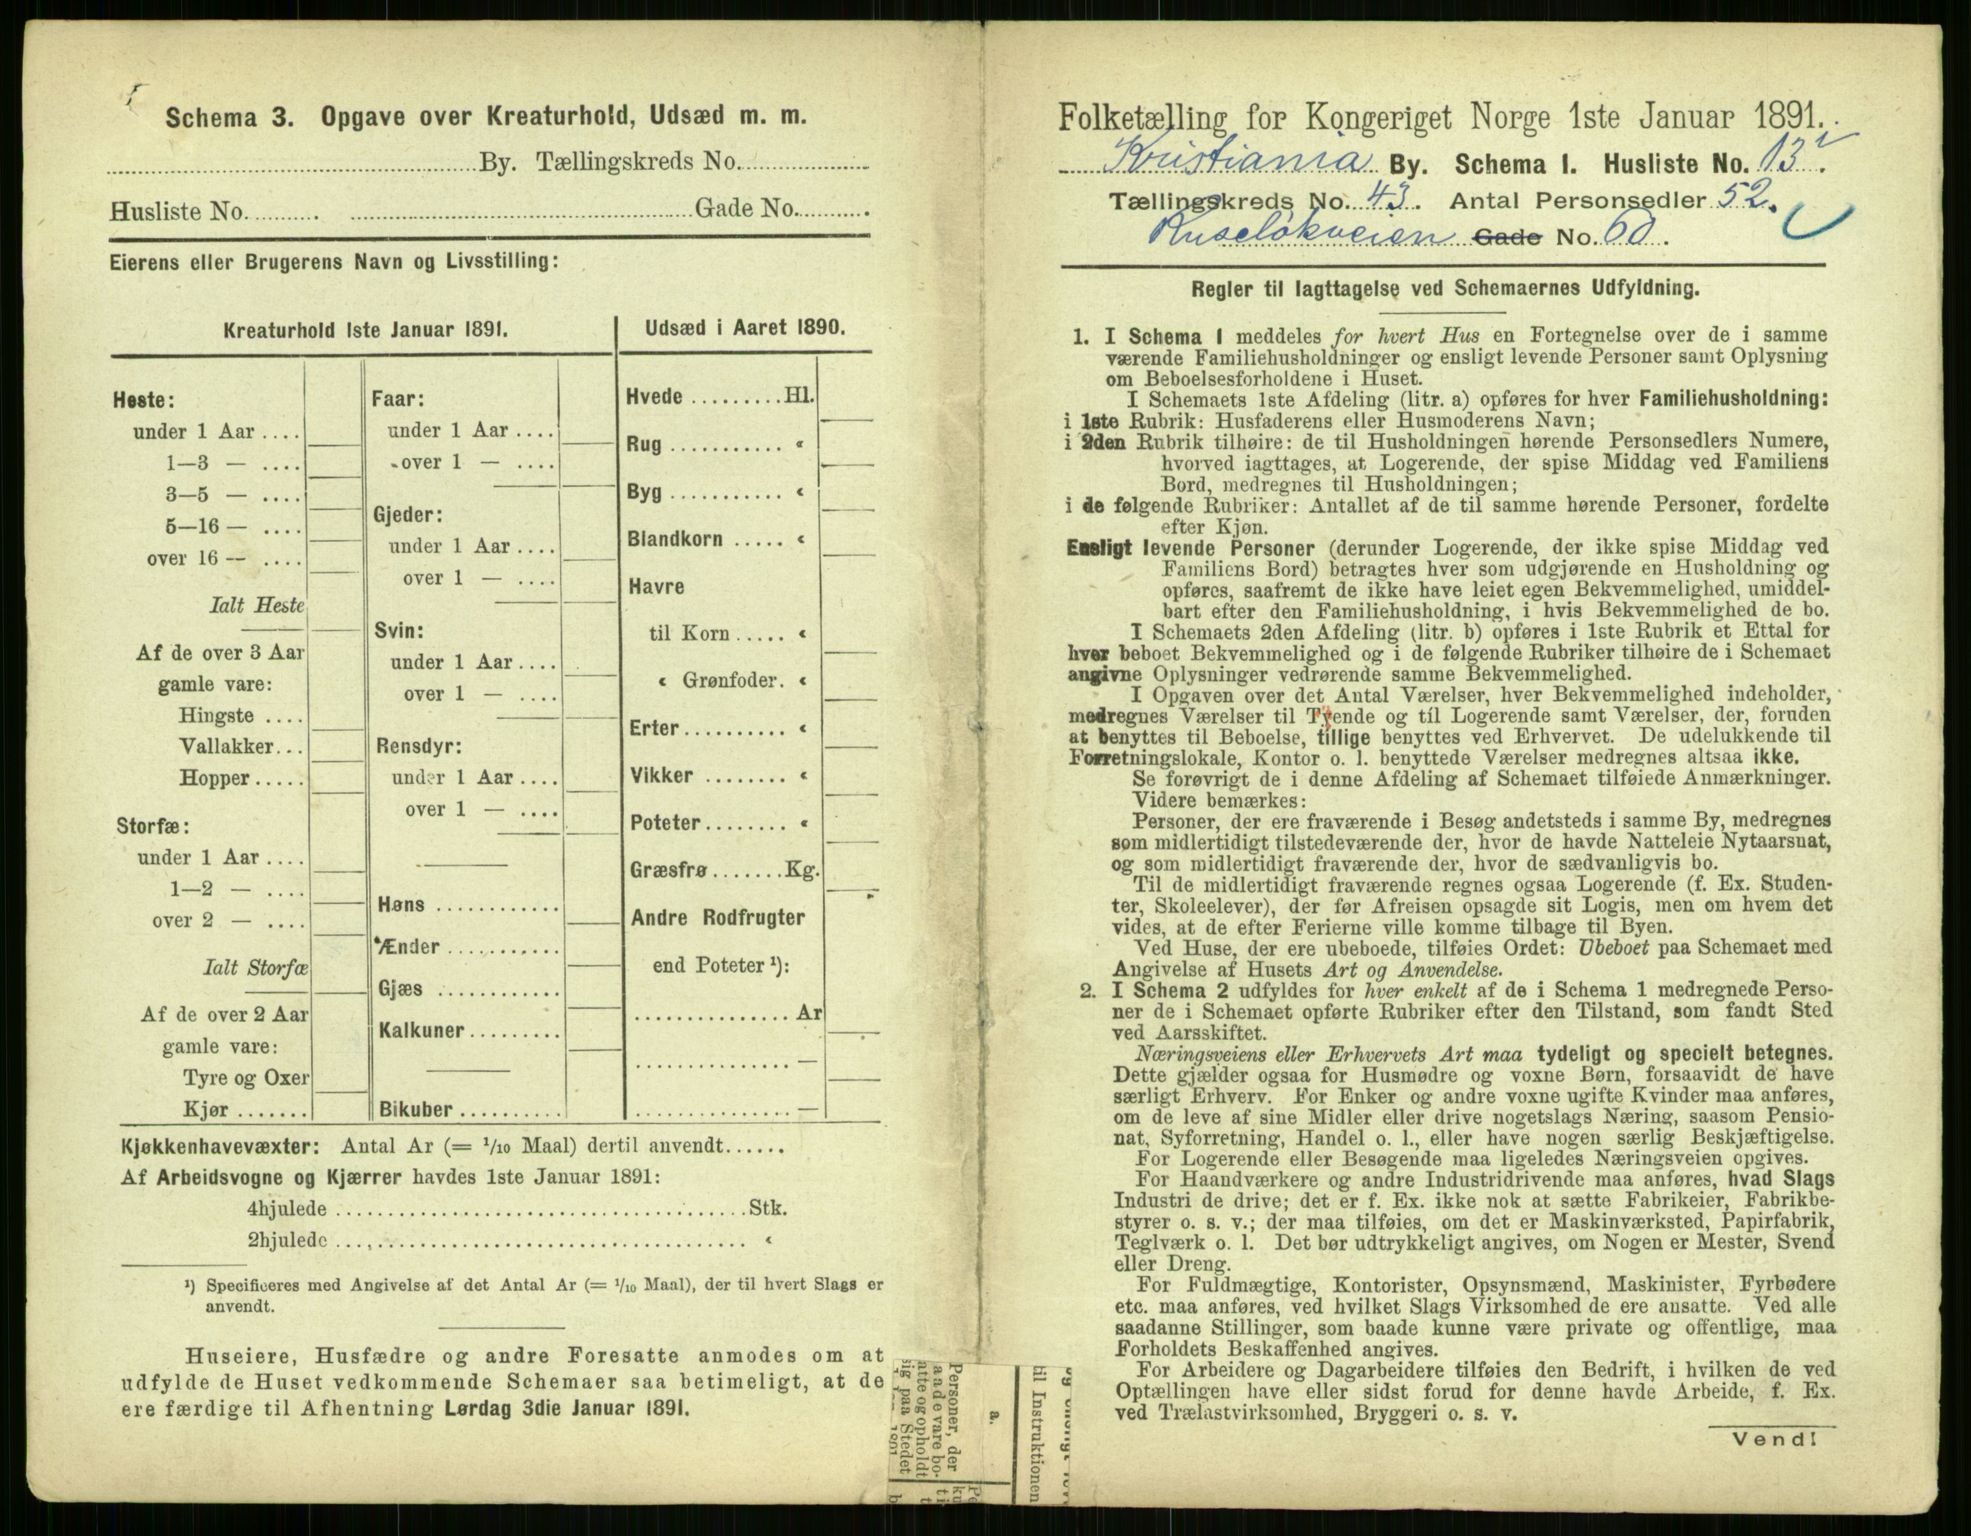 Schema 3. Opgave over Kreaturhold, Udsæd m. m.
By. Tællingskreds No.
Husliste No. Gade No.
Eierens eller Brugerens Navn og Livsstilling:
Kreaturhold 1ste Januar 1891.
Heste:
under 1 Aar ....
1—3 — ....
3—5 — ....
5—16 — ....
over 16 — ....
Ialt Heste
Af de over 3 Aar
gamle vare:
Hingste ....
Vallakker...
Hopper.....
Storfæ:
under 1 Aar ....
1—2 — ....
over 2 — ....
Ialt Storfæ
Af de over 2 Aar
gamle vare:
Tyre og Oxer
Kjør .......
Faar:
under 1 Aar ....
over 1 — ....
Gjeder:
under 1 Aar ....
over 1 — ....
Svin:
under 1 Aar ....
over 1 — ....
Rensdyr:
under 1 Aar ....
over 1 — ....
Høns ............
Ænder ...........
Gjæs ............
Kalkuner .........
Bikuber ..........
Udsæd i Aaret 1890.
Hvede .........Hl.
Rug ........... «
Byg ........... «
Blandkorn ..... «
Havre
til Korn ..... «
« Grønfoder. «
Erter .......... «
Vikker ........ «
Poteter ........ «
Græsfrø .......Kg.
Andre Rodfrugter
end Poteter ¹):
............... Ar
............... —
............... —
Kjøkkenhavevæxter: Antal Ar (= 1/10 Maal) dertil anvendt......
Af Arbeidsvogne og Kjærrer havdes 1ste Januar 1891:
4hjulede ........................................Stk.
2hjulede ........................................ «
¹) Specificeres med Angivelse af det Antal Ar (= 1/10 Maal), der til hvert Slags er
anvendt.
Huseiere, Husfædre og andre Foresatte anmodes om at
udfylde de Huset vedkommende Schemaer saa betimeligt, at de
ere færdige til Afhentning Lørdag 3die Januar 1891.
Personer, der
aade vare bo-
atte og opholdt
sig paa Stedet
a.
til Instruktionen
Folketælling for Kongeriget Norge 1ste Januar 1891.
Kristiania By. Schema 1. Husliste No. 13
Tællingskreds No. 43. Antal Personsedler 52.
Ruseløkveien Gade No. 60.
Regler til Iagttagelse ved Schemaernes Udfyldning.
1. I Schema 1 meddeles for hvert Hus en Fortegnelse over de i samme
værende Familiehusholdninger og ensligt levende Personer samt Oplysning
om Beboelsesforholdene i Huset.
I Schemaets 1ste Afdeling (litr. a) opføres for hver Familiehusholdning:
i 1ste Rubrik: Husfaderens eller Husmoderens Navn;
i 2den Rubrik tilhøire: de til Husholdningen hørende Personsedlers Numere,
hvorved iagttages, at Logerende, der spise Middag ved Familiens
Bord, medregnes til Husholdningen;
i de følgende Rubriker: Antallet af de til samme hørende Personer, fordelte
efter Kjøn.
Ensligt levende Personer (derunder Logerende, der ikke spise Middag ved
Familiens Bord) betragtes hver som udgjørende en Husholdning og
opføres, saafremt de ikke have leiet egen Bekvemmelighed, umiddel-
bart efter den Familiehusholdning, i hvis Bekvemmelighed de bo.
I Schemaets 2den Afdeling (litr. b) opføres i 1ste Rubrik et Ettal for
hver beboet Bekvemmelighed og i de følgende Rubriker tilhøire de i Schemaet
angivne Oplysninger vedrørende samme Bekvemmelighed.
I Opgaven over det Antal Værelser, hver Bekvemmelighed indeholder,
medregnes Værelser til Tyende og til Logerende samt Værelser, der, foruden
at benyttes til Beboelse, tillige benyttes ved Erhvervet. De udelukkende til
Forretningslokale, Kontor o. l. benyttede Værelser medregnes altsaa ikke.
Se forøvrigt de i denne Afdeling af Schemaet tilføiede Anmærkninger.
Videre bemærkes:
Personer, der ere fraværende i Besøg andetsteds i samme By, medregnes
som midlertidigt tilstedeværende der, hvor de havde Natteleie Nytaarsnat,
og som midlertidigt fraværende der, hvor de sædvanligvis bo.
Til de midlertidigt fraværende regnes ogsaa Logerende (f. Ex. Studen-
ter, Skoleelever), der før Afreisen opsagde sit Logis, men om hvem det
vides, at de efter Ferierne ville komme tilbage til Byen.
Ved Huse, der ere ubeboede, tilføies Ordet: Ubeboet paa Schemaet med
Angivelse af Husets Art og Anvendelse.
2. I Schema 2 udfyldes for hver enkelt af de i Schema 1 medregnede Perso-
ner de i Schemaet opførte Rubriker efter den Tilstand, som fandt Sted
ved Aarsskiftet.
Næringsveiens eller Erhvervets Art maa tydeligt og specielt betegnes.
Dette gjælder ogsaa for Husmødre og voxne Børn, forsaavidt de have
særligt Erhverv. For Enker og andre voxne ugifte Kvinder maa anføres,
om de leve af sine Midler eller drive nogetslags Næring, saasom Pensio-
nat, Syforretning, Handel o. l., eller have nogen særlig Beskjæftigelse.
For Logerende eller Besøgende maa ligeledes Næringsveien opgives.
For Haandværkere og andre Industridrivende maa anføres, hvad Slags
Industri de drive; det er f. Ex. ikke nok at sætte Fabrikeier, Fabrikbe-
styrer o. s. v.; der maa tilføies, om det er Maskinværksted, Papirfabrik,
Teglværk o. l. Det bør udtrykkeligt angives, om Nogen er Mester, Svend
eller Dreng.
For Fuldmægtige, Kontorister, Opsynsmænd, Maskinister, Fyrbødere
etc. maa anføres, ved hvilket Slags Virksomhed de ere ansatte. Ved alle
saadanne Stillinger, som baade kunne være private og offentlige, maa
Forholdets Beskaffenhed angives.
For Arbeidere og Dagarbeidere tilføies den Bedrift, i hvilken de ved
Optællingen have eller sidst forud for denne havde Arbeide, f. Ex.
ved Trælastvirksomhed, Bryggeri o. s. v.
Vend!